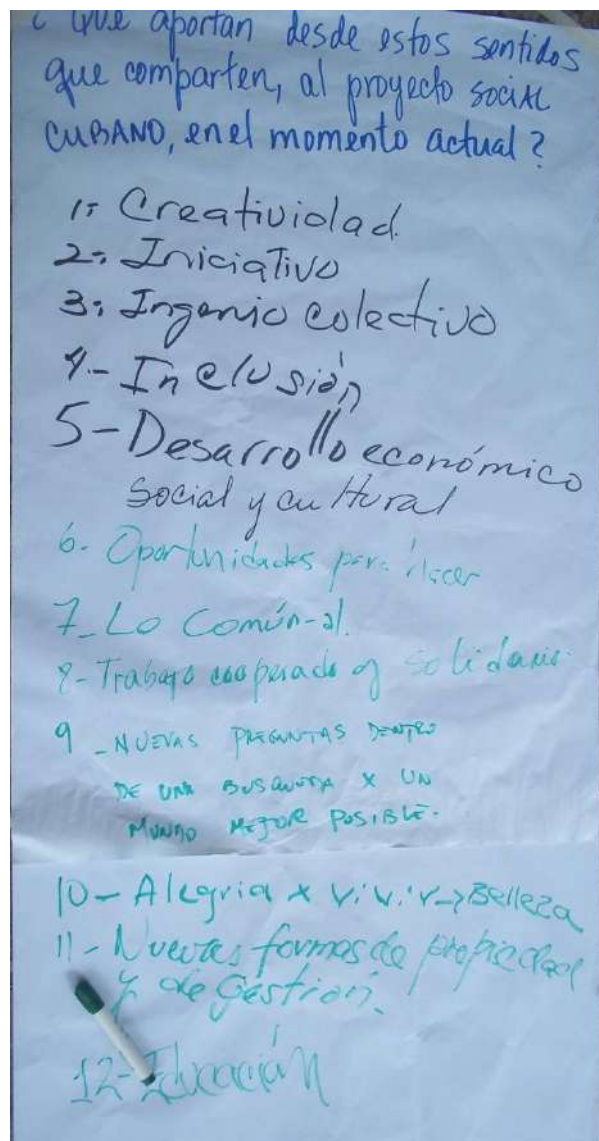 ¿ Que aportan desde estos sentidos
que comparten, al proyecto SOCIAL
CUBANO, en el momento actual?
1- Creatividad.
2- Iniciativo
3- Ingenio colectivo
4.- Inclusión
5- Desarrollo económico
Social y cultural
6. Oportunidades para hacer
7_ Lo Común-al.
8- Trabajo cooperado y solidario.
9 _ NUEVAS PREGUNTAS DENTRO
DE UNA BUSQUEDA X UN
MUNDO MEJOR POSIBLE.
10- Alegria x vivir→Belleza
11- Nuevas formas de propiedad
y de Gestión.
12- Educación